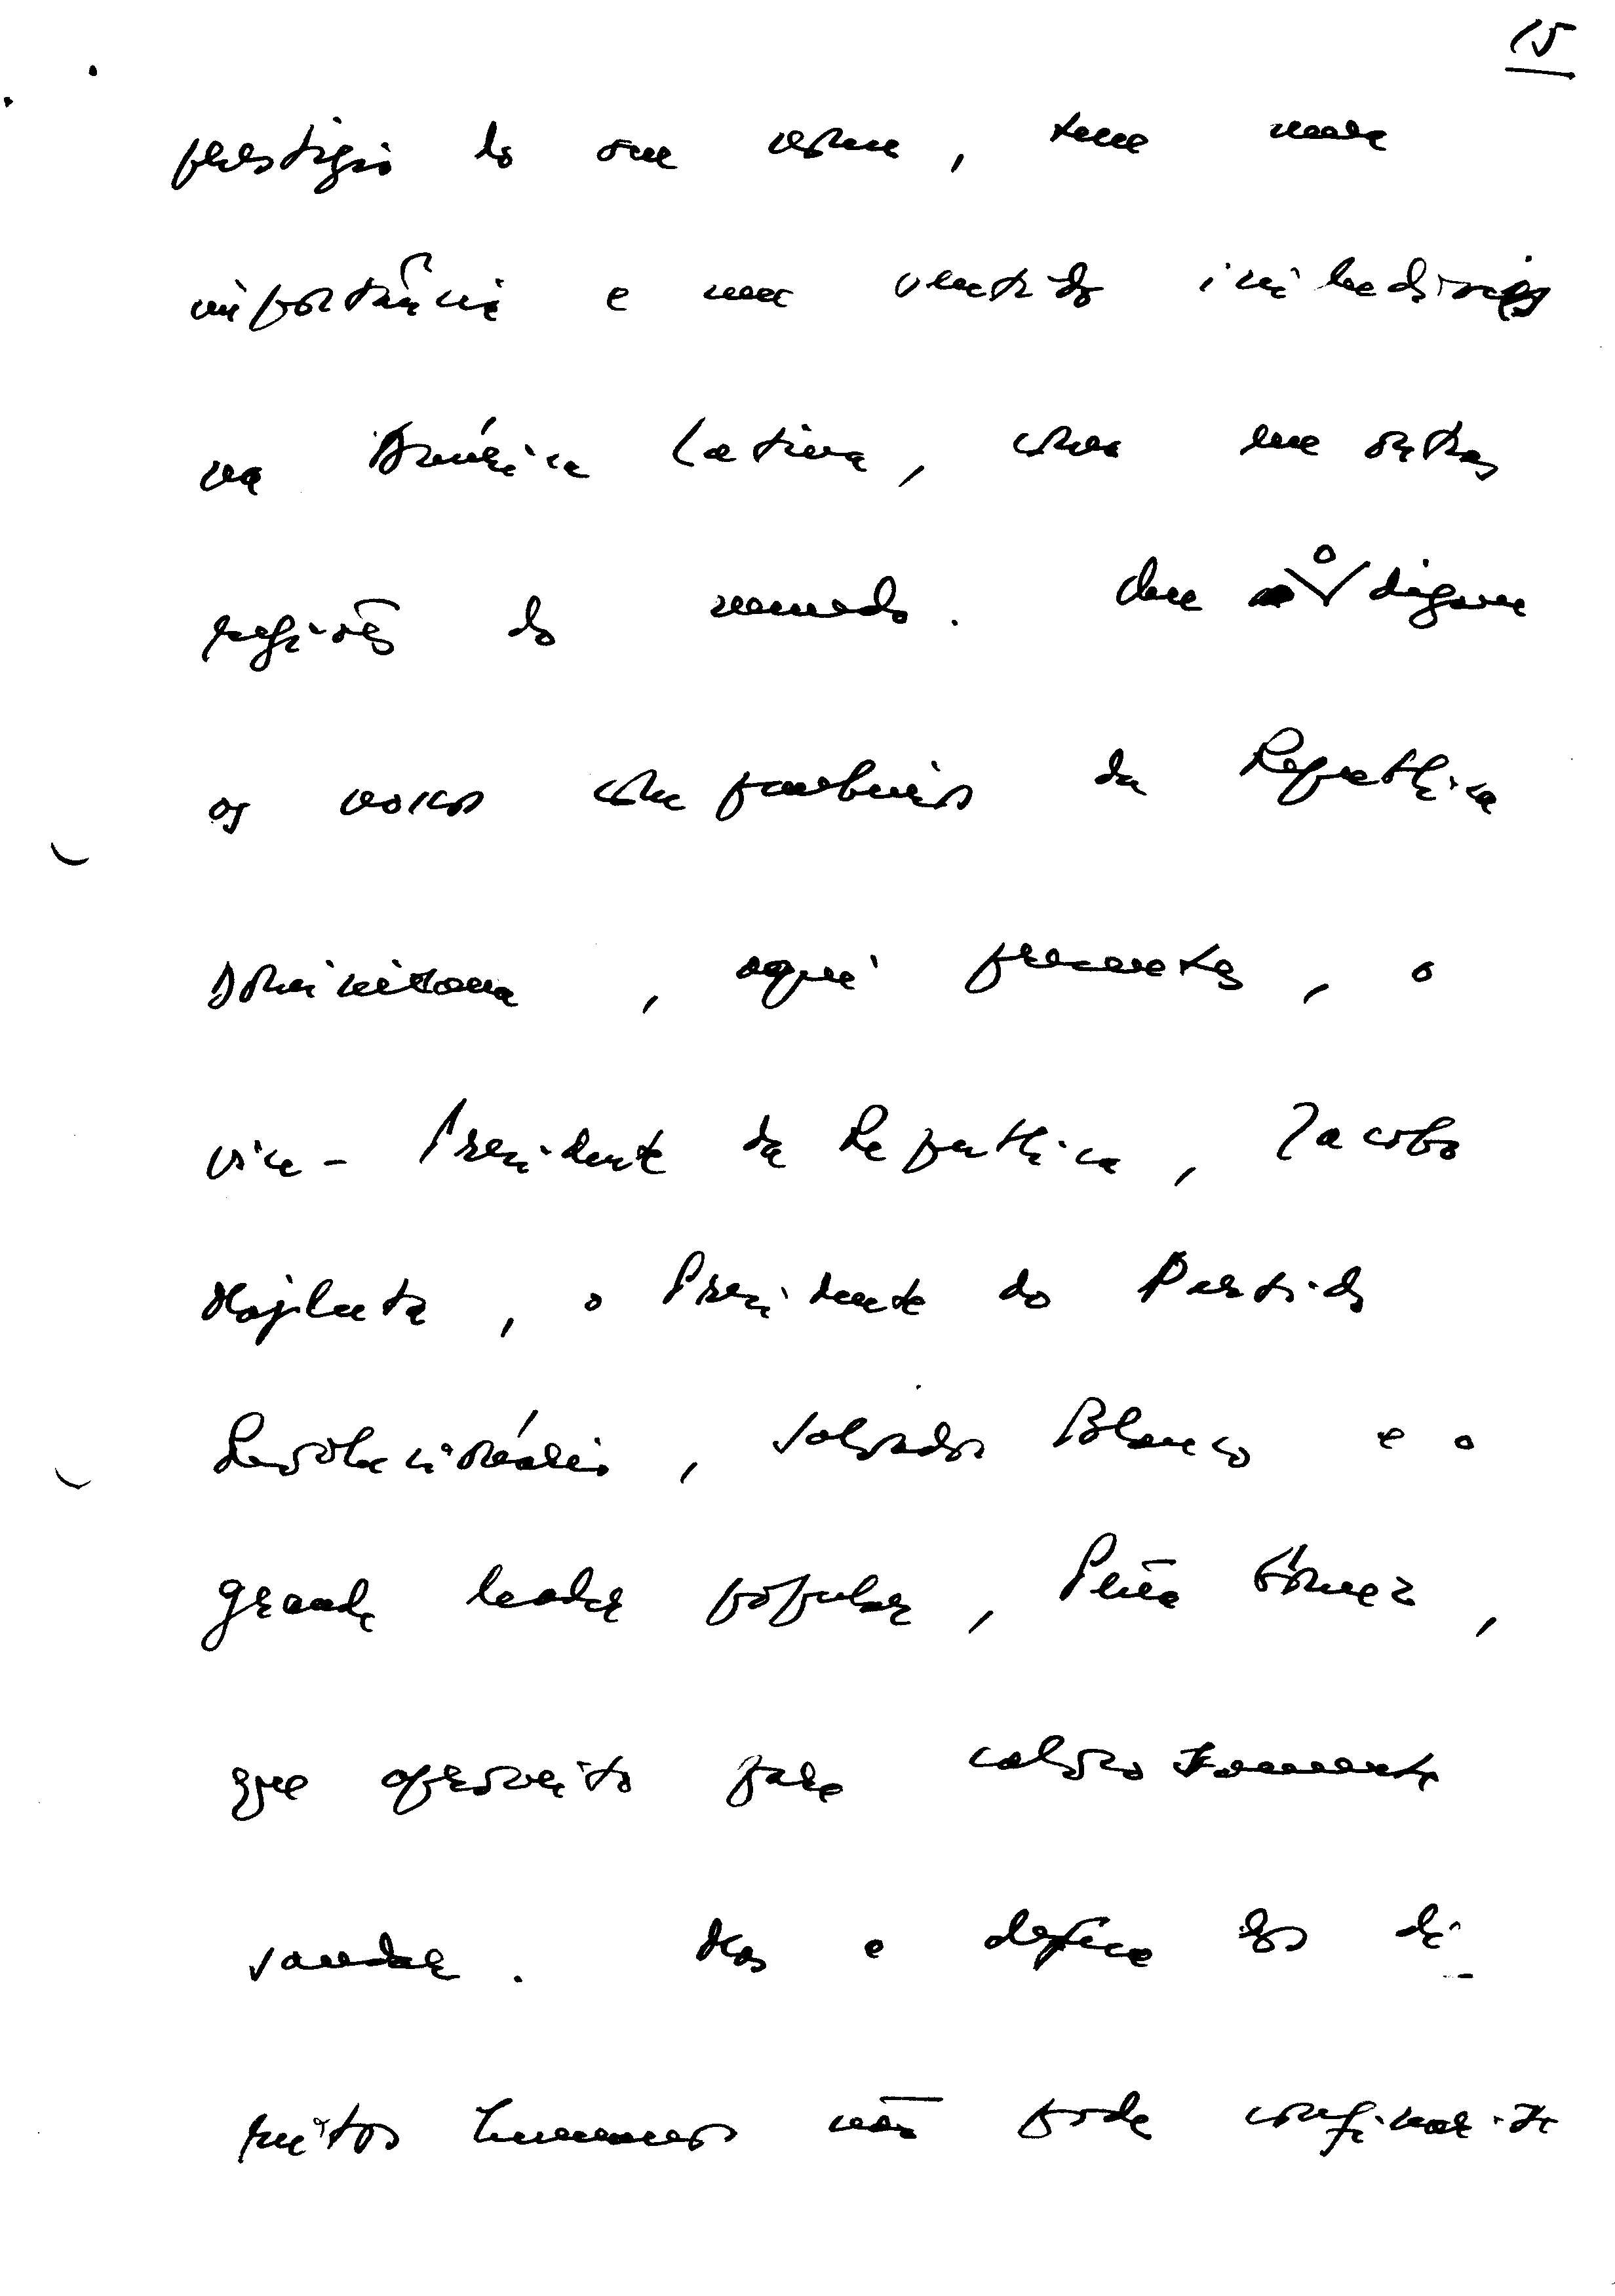 15
prestígio do seu nome, tem uma
importância e um sentido imediatos
na América Latina, como em outras
regiões do mundo. Que o digam
os nossos companheiros da República
Dominicana, aqui presentes, o
vice-Presidente da República, Jacobo
Majluta, o Presidente do Partido
Revolucionário, Salvador Blanco e o
grande leader popular, Peña Gómez,
que aproveito para calorosamente
saudar. Mas a defesa dos di-
reitos humanos não pode confinar-se